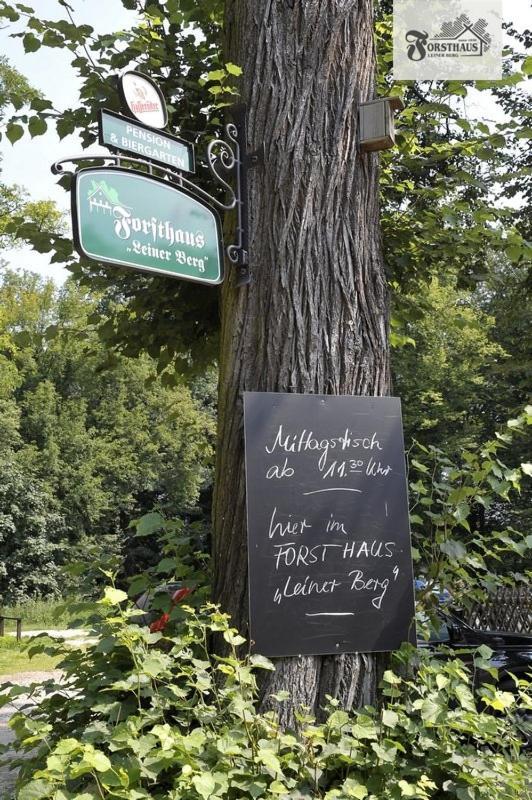 FORSTHAUS
LEINER BERG
Hasseröder
PENSION
& BIERGARTEN
Forsthaus
„Leiner Berg"
Mittagstisch
ab 11.30 Uhr
hier im
FORSTHAUS
„Leiner Berg"